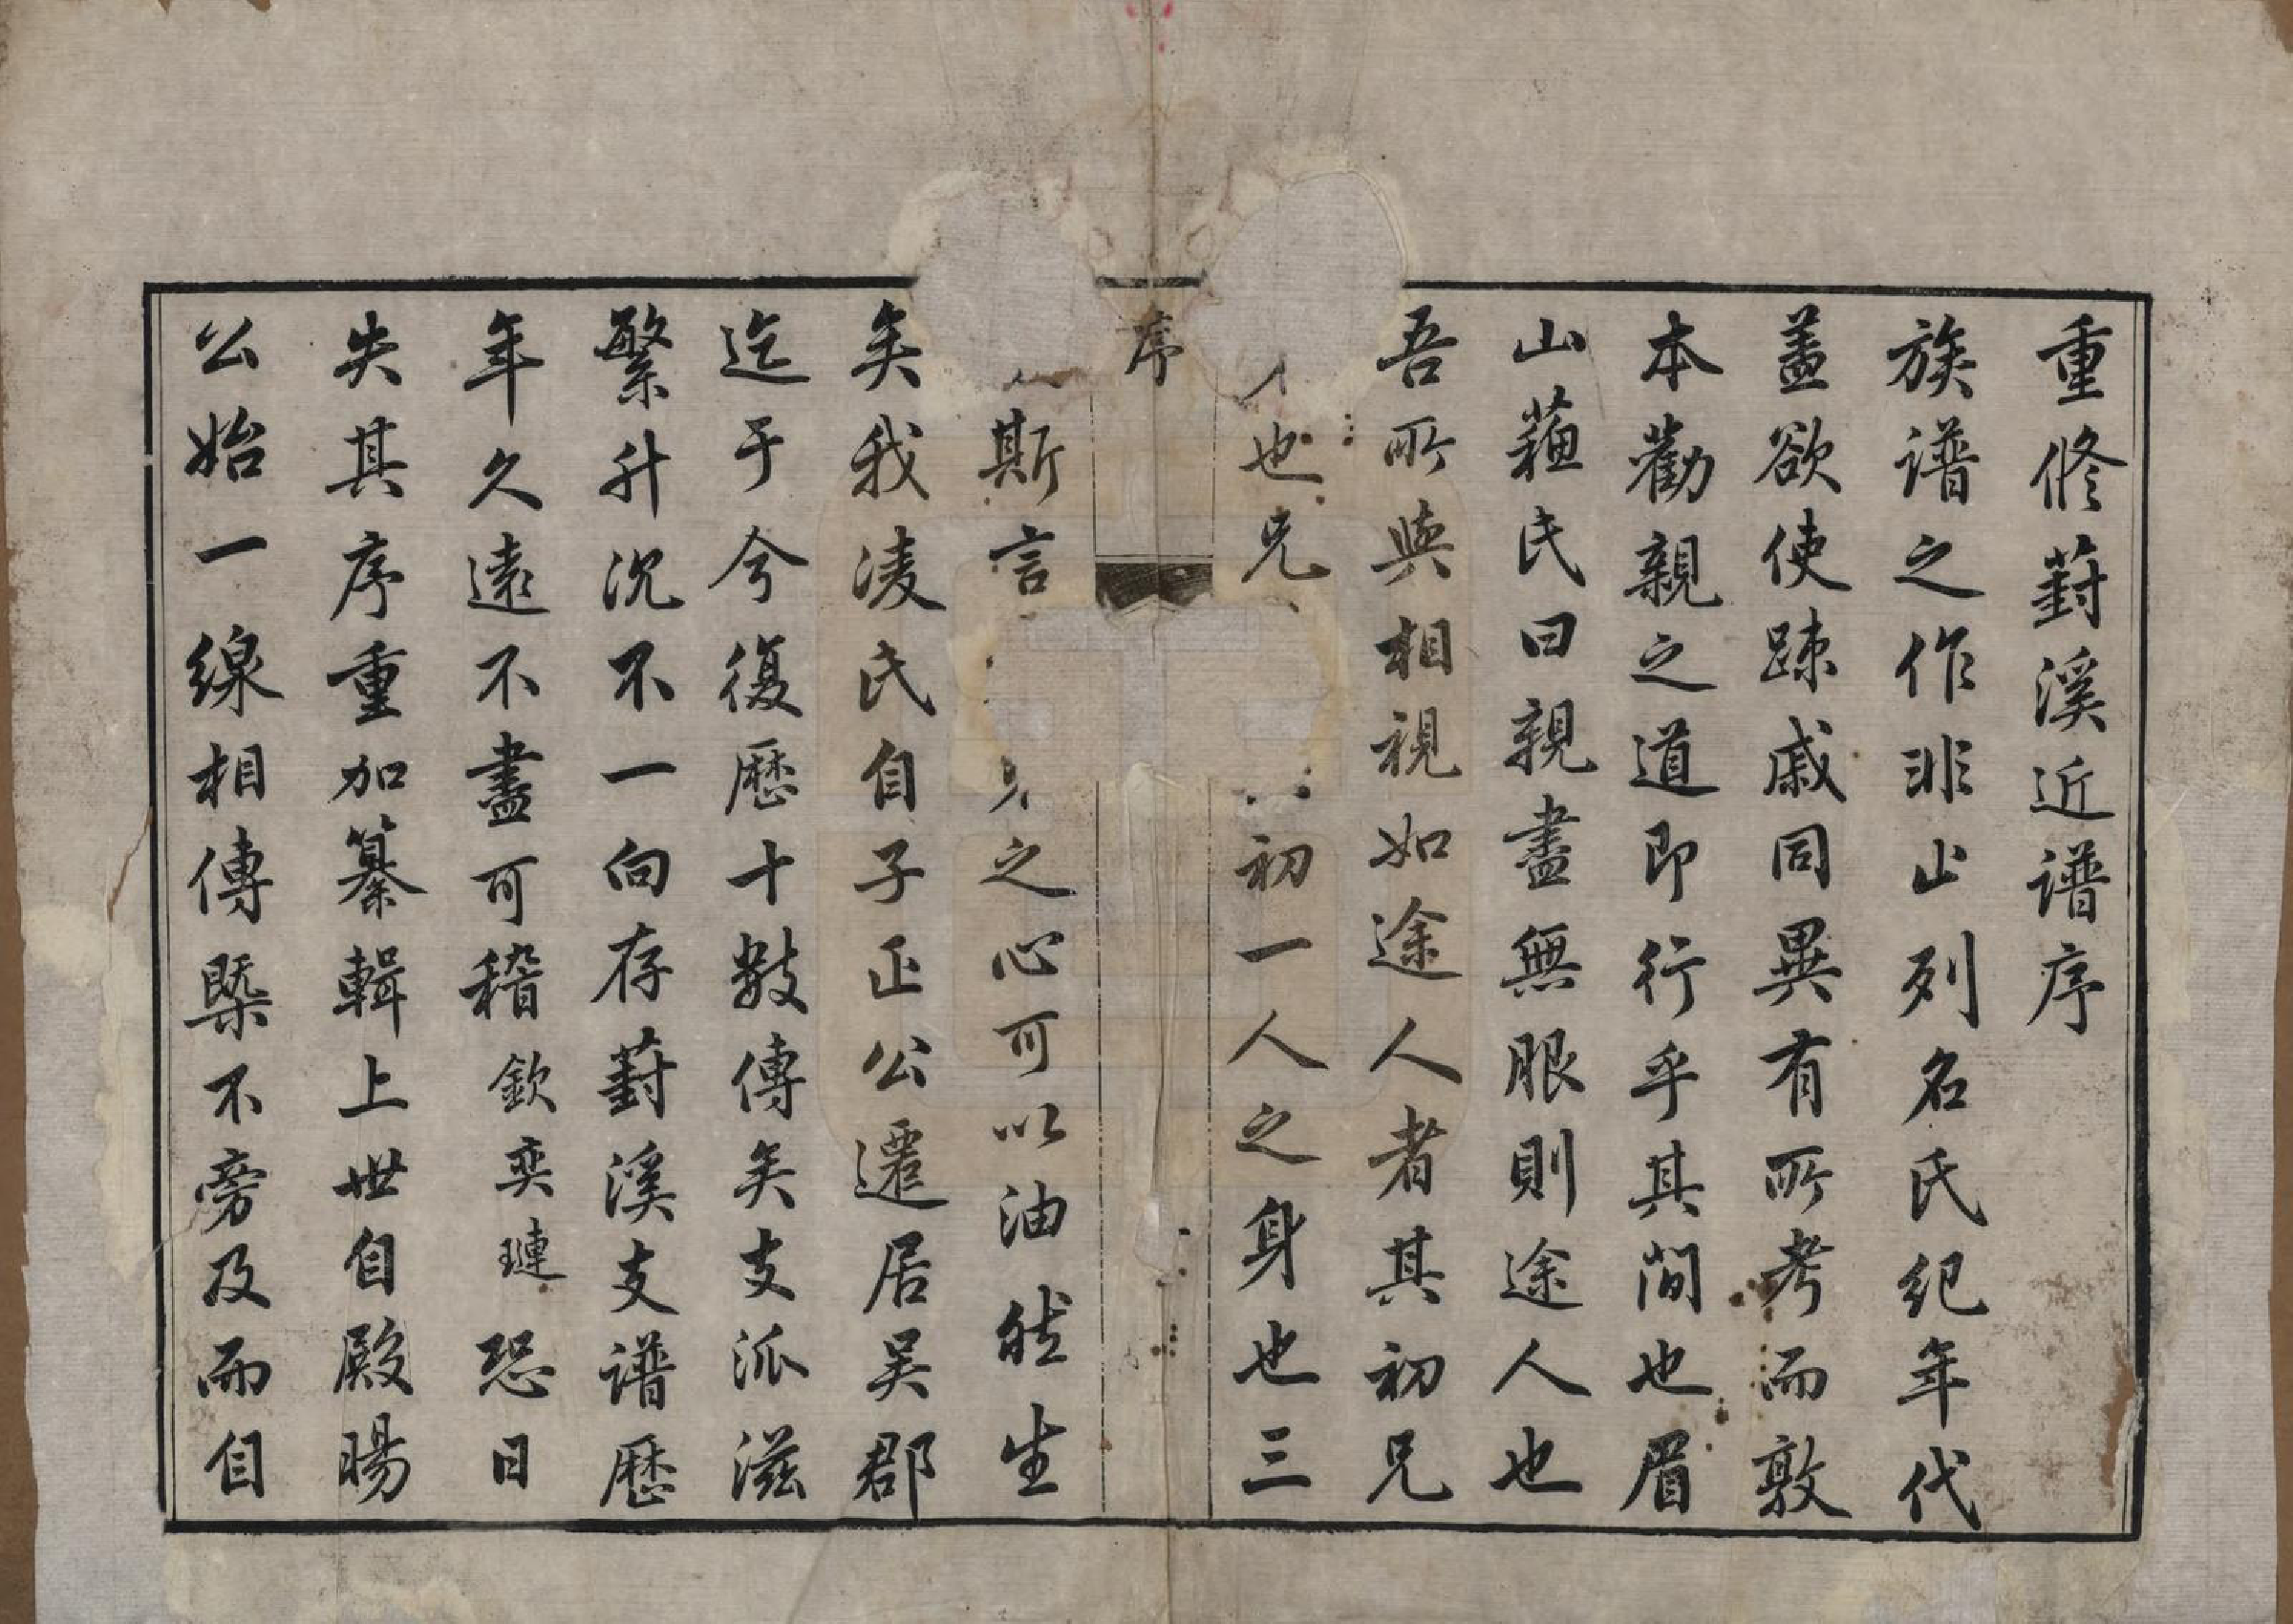 重修葑溪近譜序
族譜之作非止列名氏紀年代
蓋欲使踈戚同異有所考而敦
本勸親之道即行乎其間也眉
山蘓氏曰親盡無服則途人也
吾所與相視如途人者其初兄
也兄初一人之身也三
序
斯言之心可以油然生
矣我凌氏自子正公遷居吴郡
迄于今復歷十數傳矣支派滋
繁升沉不一向存葑溪支譜歷
年久遠不盡可稽欽奕璉恐日
失其序重加纂輯上世自殿暘
公始一線相傳槩不旁及而自